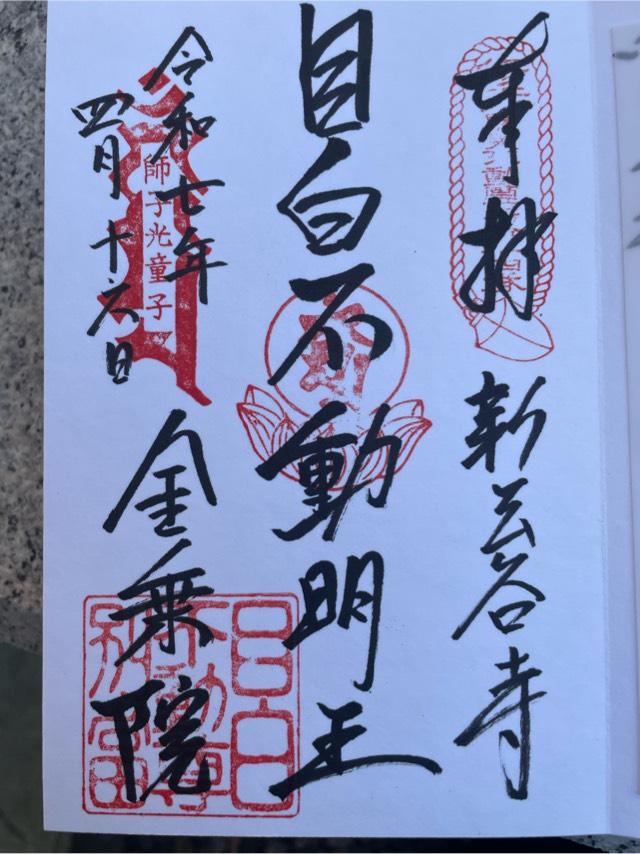 奉拝
新長谷寺
目白不動明王
令和七年
四月十六日
師子光童子
金乗院
目白
不動尊